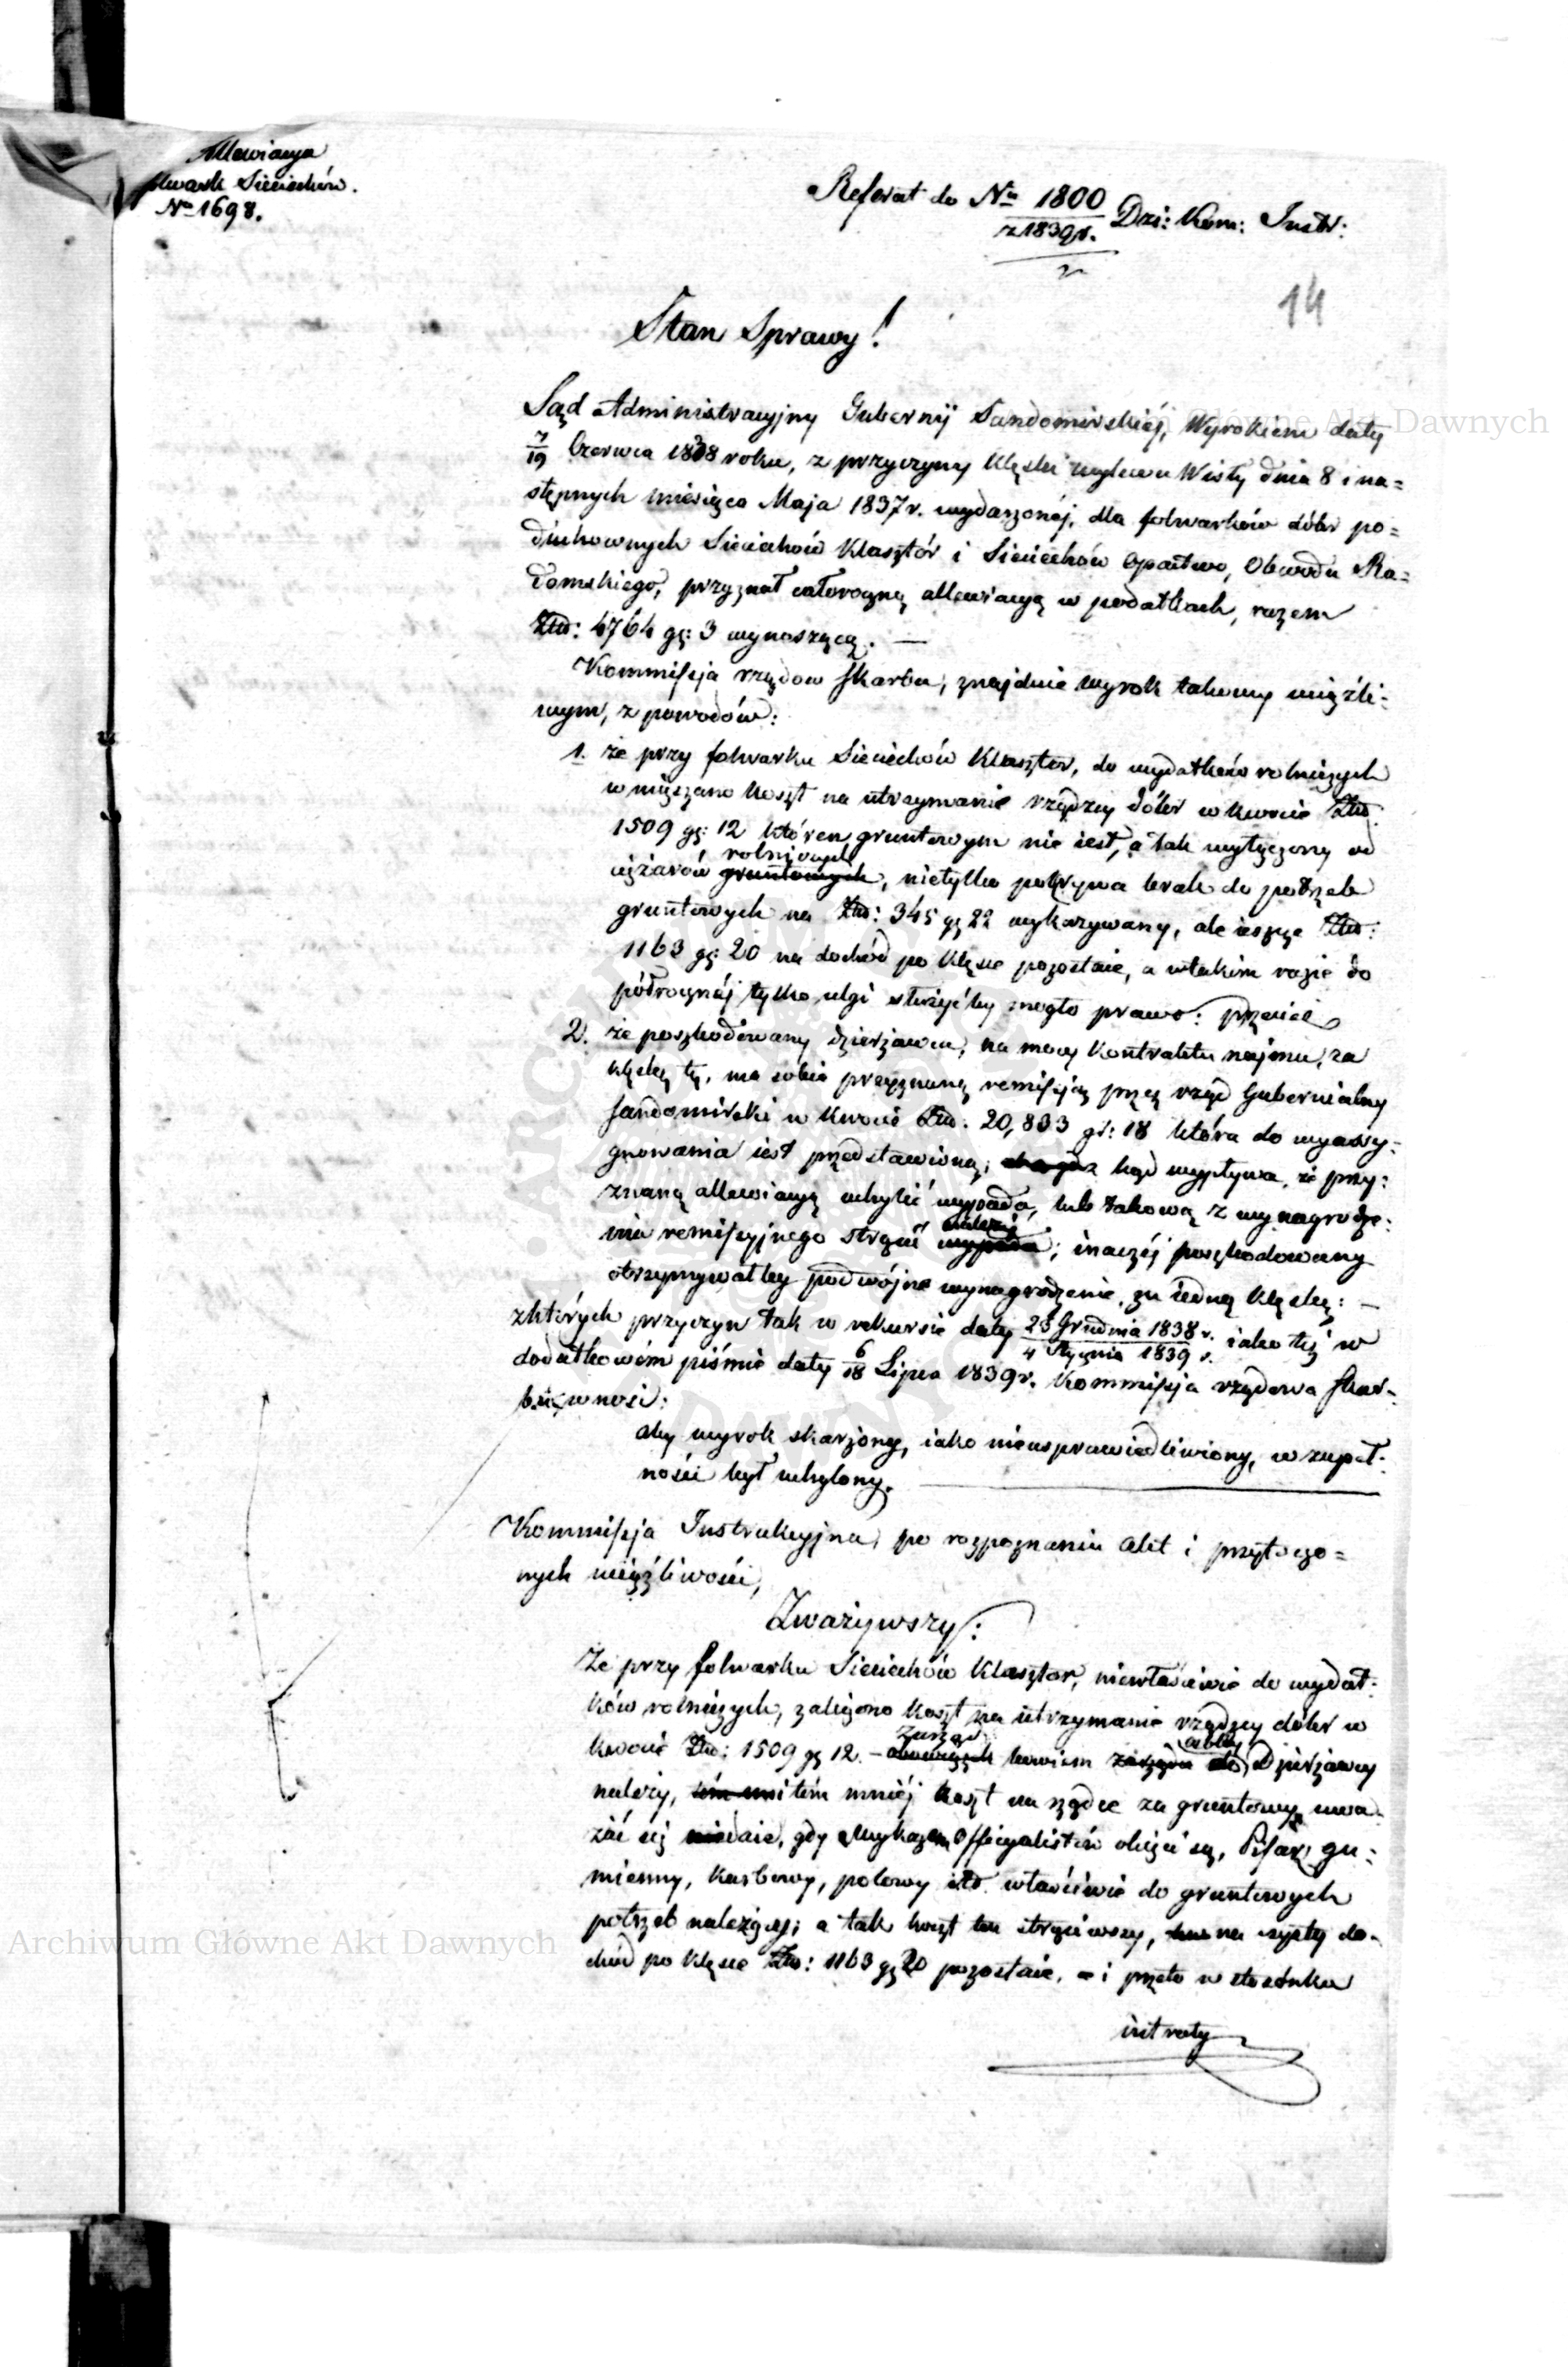 Allewiacya
folwark Sieciechów.
No 1698.
Referat do No 1800 Dzi: Kom: Instr:
z 1839 r.
14
Stan Sprawy!
Sąd Administracyjny Gubernij Sandomirskiéj, Wyrokiem daty
7/19 Czerwca 1838 roku, z przyczyny klęski wylewu Wisły dnia 8 i na=
stępnych miesiąca Maja 1837 r. wydarzonéj, dla folwarków dóbr po=
duchownych Sieciechów Klasztór i Sieciechów Opactwo, Obwodu Ra=
domskiego, przyznał całoroczną allewiacyą w podatkach, razem
Złp: 4764 gr: 3 wynoszącą. —
Kommissja rządow Skarbu, znajduie wyrok takowy uciążli=
wym, z powodów:
1. że przy folwarku Sieciechów Klasztor, do wydatków rolniczych
wmięszano koszt na utrzymanie rządzcy dóbr w kwocie Złp
1509 gr: 12 któren gruntowym nie iest, a tak wyłączony od
ciężarów gruntowych rolniczych, nietylko pokrywa brak do potrzeb
gruntowych na Złp: 345 gr 22 wykazywany, ale ieszcze Złp:
1163 gr: 20 na dochód po klęsce pozostaie, a wtakim razie do
półrocznéj tylko ulgi służyćby mogło prawo: przecież
2. że poszkodowany dzierżawca, na mocy kontraktu najmu, za
klęskę tę, ma sobie przyznaną remissją przez rząd Gubernialny
Sandomirski w kwocie Złp: 20,833 gr: 18 która do wyassy=
gnowania iest przedstawioną; zkąd wypływa, że przy=
znaną allewiacyą uchylić wypada, lub takową z wynagrodze=
nia remissyjnego strącić wypada należy; inaczéj poszkodowany
otrzymywałby podwójne wynagrodzenie, za iedną klęskę: —
zktórych przyczyn tak w rekursie daty 23 Grudnia 1838 r. / 4 Stycznia 1839 r. iako też w
dodatkowém piśmie daty 6/18 Lipca 1839 r. Kommissja rządowa Skar=
bu, wnosi:
aby wyrok skarżony, iako nieusprawiedliwiony, w zupeł=
ności był uchylony.
Kommissja Instrukcyjna, po rozpoznaniu akt i przytoczo=
nych uciążliwości,
Zważywszy:
Że przy folwarku Sieciechów Klasztor, niewłaściwie do wydat=
ków rolniczych, zaliczono koszt na utrzymanie rządzcy dóbr w
kwocie Złp: 1509 gr 12. – zarząd bowiem do dzierżawcy
należy, i tém mniéj koszt na rządcę za gruntowy uwa=
żać się nie daie, gdy wykazem Officyalistów obięci są, Pisarz gu=
mienny, karbowy, polowy itd. właściwie do gruntowych
potrzeb należący; a tak koszt ten strąciwszy, na czysty do=
chód po klęsce Złp: 1163 gr 20 pozostaie, i przeto w stosunku
intraty
Archiwum Główne Akt Dawnych
Archiwum Główne Akt Dawnych